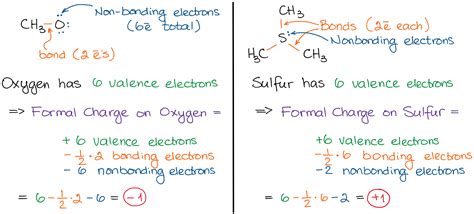 Non-bonding electrons
(6ē total)
CH₃–O:
bond (2 ē's)
Oxygen has 6 valence electrons
=> Formal Charge on Oxygen =
+6 valence electrons
-½·2 bonding electrons
-6 nonbonding electrons
= 6-½·2-6= -1
CH₃
Bonds (2ē each)
S:
Nonbonding electrons
H₃C
CH₃
Sulfur has 6 valence electrons
=> Formal Charge on Sulfur =
+6 valence electrons
-½·6 bonding electrons
-2 nonbonding electrons
= 6-½·6-2= +1